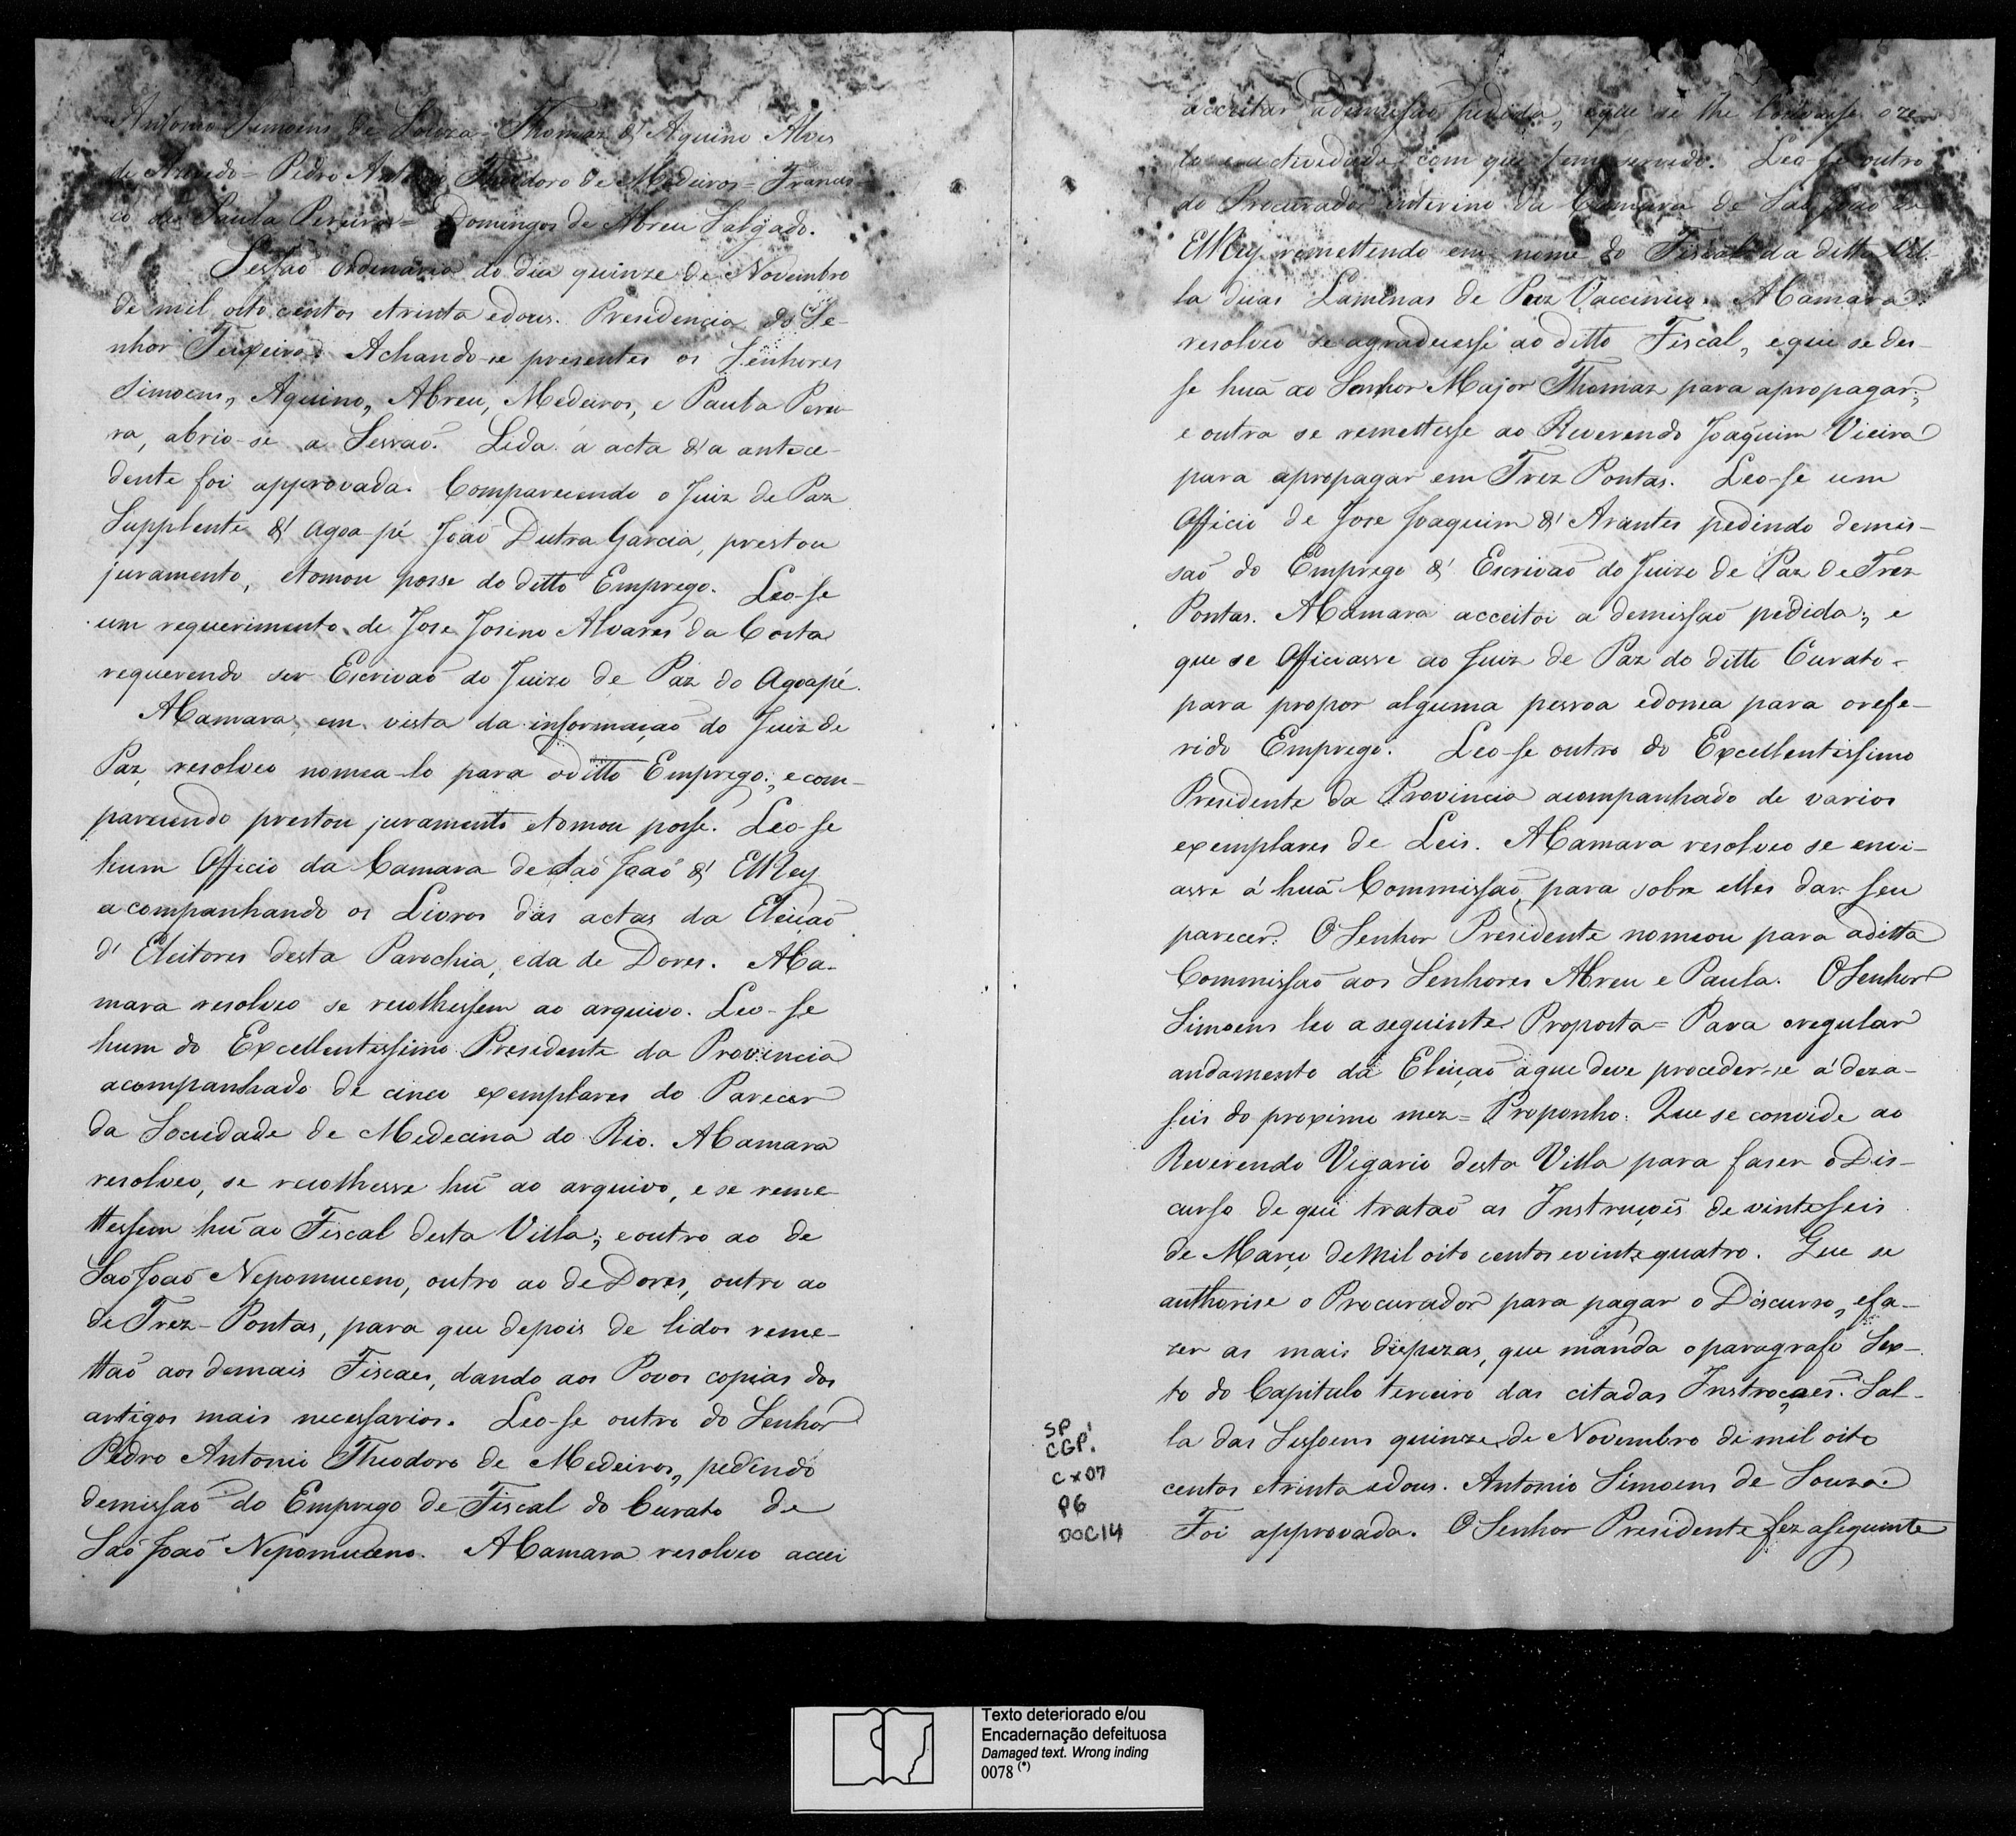 Antonio Simoens de Souza = Thomaz d'Aquino Alves
de Azevedo = Pedro Antonio Theodoro de Medeiros = Francis-
co de Paula Pereira = Domingos de Abreu Salgado.
Sessaõ Ordinaria do dia quinze de Novembro
de mil oito centos etrinta edous. Presidencia do Se-
nhor Teixeira. Achando-se presentes os Senhores
Simoens, Aquino, Abreu, Medeiros, e Paula Perei-
ra, abrio-se a Sessaõ. Lida a acta d'a antece-
dente foi approvada. Comparecendo o Juiz de Paz
Supplente d'Agoa-pé Joaõ Dutra Garcia, prestou
juramento, etomou posse do ditto Emprego. Leo-se
um requerimento de Jose Josino Alvares da Costa
requerendo ser Escrivaõ do Juizo de Paz do Agoapé.
ACamara, em vista da informaçaõ do Juiz de
Paz, resolveo nomea-lo para oditto Emprego; ecom-
parecendo prestou juramento etomou posse. Leo-se
hum Officio da Camara de Saõ Joaõ d'ElRey
acompanhando os Livros das actas da Eleiçaõ
d'Eleitores desta Parochia, eda de Dores. ACa-
mara resolveo se recolhessem ao arquivo. Leo-se
hum do Excellentissimo Presidente da Provincia
acompanhado de cinco exemplares do Parecer
da Sociedade de Medecina do Rio. ACamara
resolveo, se recolhesse hũ ao arquivo, e se reme-
ttessem hũ ao Fiscal desta Villa; eoutro ao de
Saõ Joaõ Nepomuceno, outro ao de Dores, outro ao
de Trez-Pontas, para que depois de lidos reme-
ttaõ aos demais Fiscaes, dando aos Povos copias dos
artigos mais necessarios. Leo-se outro do Senhor
Pedro Antonio Theodoro de Medeiros, pedindo
demissaõ do Emprego de Fiscal do Curato de
Saõ Joaõ Nepomuceno. ACamara resolveo acei
acceitar ademissaõ pedida, eque se lhe louvasse oze-
lo eactividade com que tem servido. Leo-se outro
do Procurador interino da Camara de Saõ Joaõ d'
ElRey remettendo em nome do Fiscal da ditta Vil-
la duas Laminas de Puz Vaccinico. ACamara
resolveo se agradecesse ao ditto Fiscal, eque se des-
se huã ao Senhor Major Thomaz para apropagar;
e outra se remettesse ao Reverendo Joaquim Vieira
para apropagar em Trez Pontas. Leo-se um
Officio de Jose Joaquim d'Arantes pedindo demis-
saõ do Emprego d'Escrivaõ do Juizo de Paz de Trez
Pontas. ACamara acceitoi a demissaõ pedida; e
que se Officiasse ao Juiz de Paz do ditto Curato-
para propor alguma pessoa edonea para orefe-
rido Emprego. Leo-se outro do Excellentissimo
Presidente da Provincia acompanhado de varios
exemplares de Leis. ACamara resolveo se envi-
asse á huã Commissaõ, para sobre elles dar seu
parecer. OSenhor Presidente nomeou para aditta
Commissaõ aos Senhores Abreu e Paula. OSenhor
Simoens leo aseguinte Proposta = Para oregular
andamento da Eleiçaõ aque deve proceder-se á deza-
seis do proximo mez = Proponho: Que se convide ao
Reverendo Vigario desta Villa para faser oDis-
curso de que trataõ as Instruçoẽs de vinteseis
de Março demil oito centos evintequatro. Que se
authorise o Procurador para pagar o Discurso, efa-
zer as mais dispezas, que manda oparagrafo Sex-
to do Capitulo terceiro das citadas Instroçaes. Sal-
la das Sessoens quinze de Novembro de mil oito
centos etrinta edous. Antonio Simoens de Souza.
Foi approvada. OSenhor Presidente fez aseguinte
SP
CGP1
Cx07
P6
DOC14
Texto deteriorado e/ou
Encadernação defeituosa
Damaged text. Wrong inding
0078 (*)